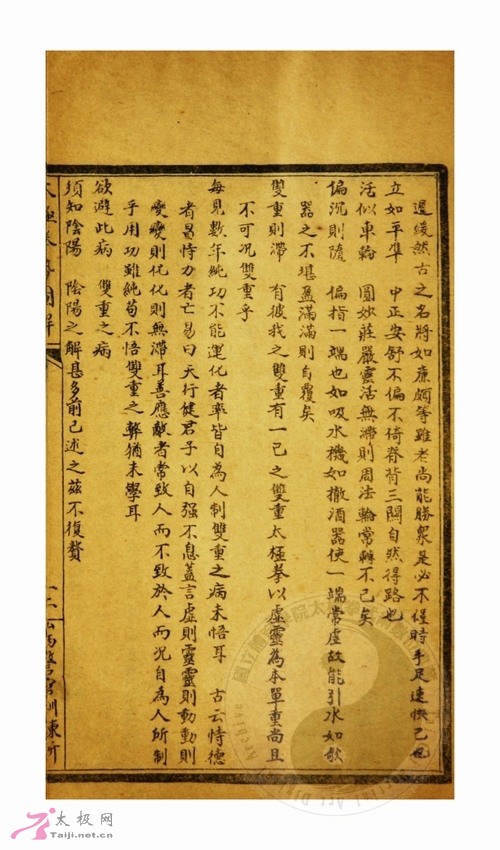 遲緩然古之名將如廉頗等雖老尚能勝衆是必不僅時手足速快已也
立如平準　中正安舒不偏不倚脊背三關自然得路也
活似車輪　圓妙莊嚴靈活無滯則周法輪常轉不已矣
偏沉則隨　偏指一端也如吸水機如撤酒器使一端常虛故能引水如欹
器之不堪盈滿滿則自覆矣
雙重則滯　有彼我之雙重有一己之雙重太極拳以虛靈為本單重尚且
不可況雙重乎
每見數年純功不能運化者率皆自為人制雙重之病未悟耳　古云恃德
者昌恃力者亡易曰天行健君子以自强不息蓋言虛則靈靈則動動則
變變則化化則無滯耳善應敵者常致人而不致於人而況自為人所制
乎用功雖純苟不悟雙重之弊猶未學耳
欲避此病　雙重之病
須知陰陽　陰陽之解甚多前已述之茲不復贅
圖解
太极网
Taiji.net.cn